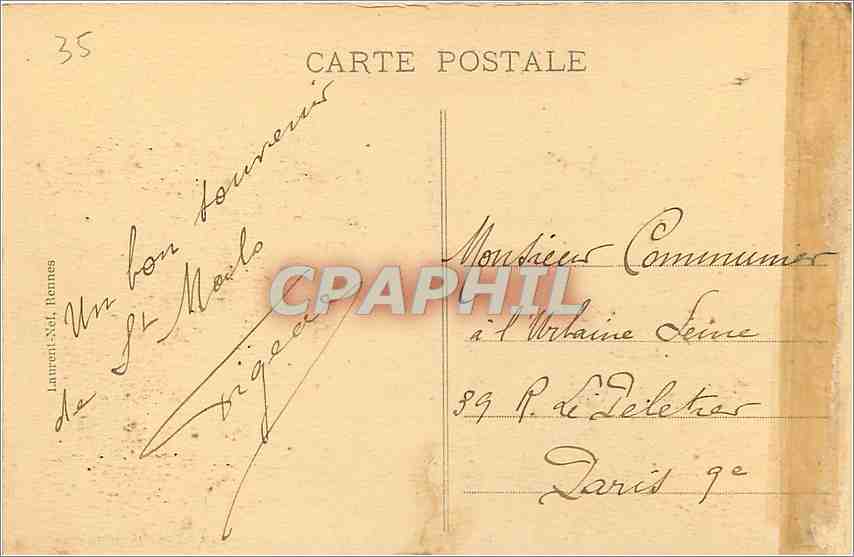 35
CARTE POSTALE
Un bon souvenir
de St Malo
Laurent-Nel, Rennes
CPAPHIL
Monsieur Communier
à l'Urbaine Seine
39 R. Le Peletier
Paris 9e